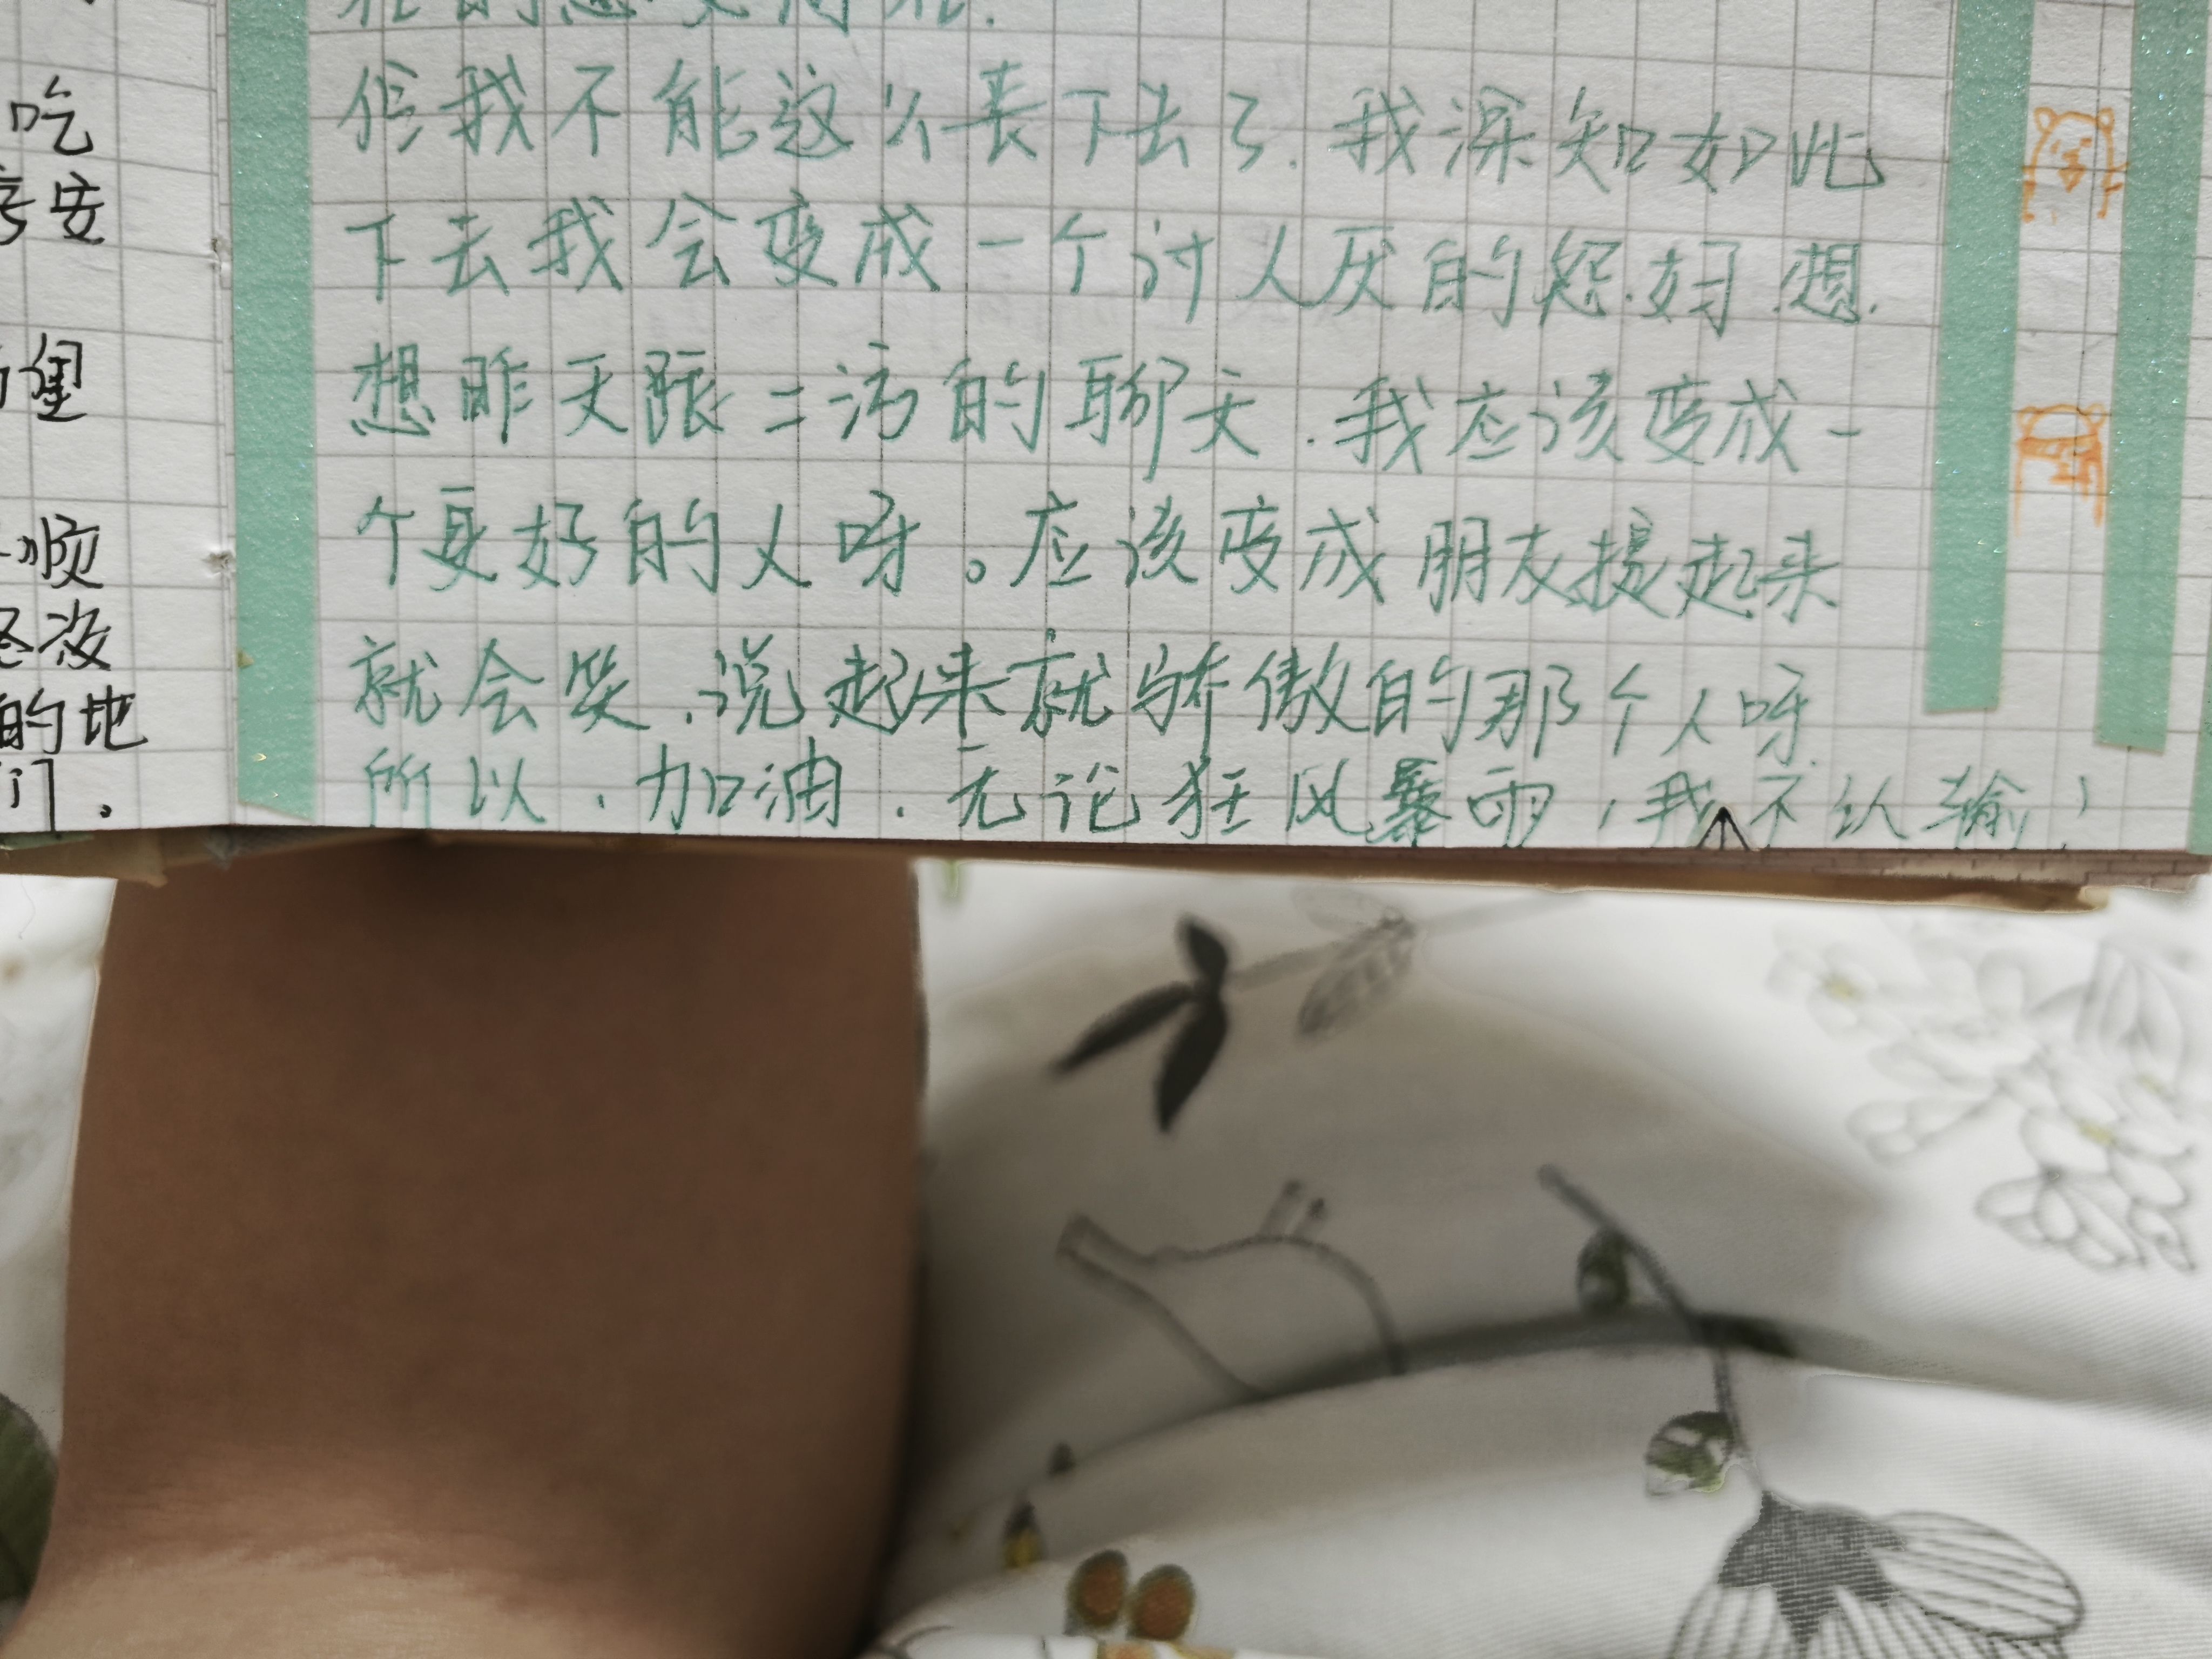 吃
安
顺
没
的地
们。
但我不能这么丧下去了.我深知如此
下去我会变成一个讨人厌的怨妇.想
想昨天跟二涛的聊天.我应该变成一
个更好的人呀。应该变成朋友提起来
就会笑.说起来就骄傲的那个人呀.
所以.加油.无论狂风暴雨,我不认输!